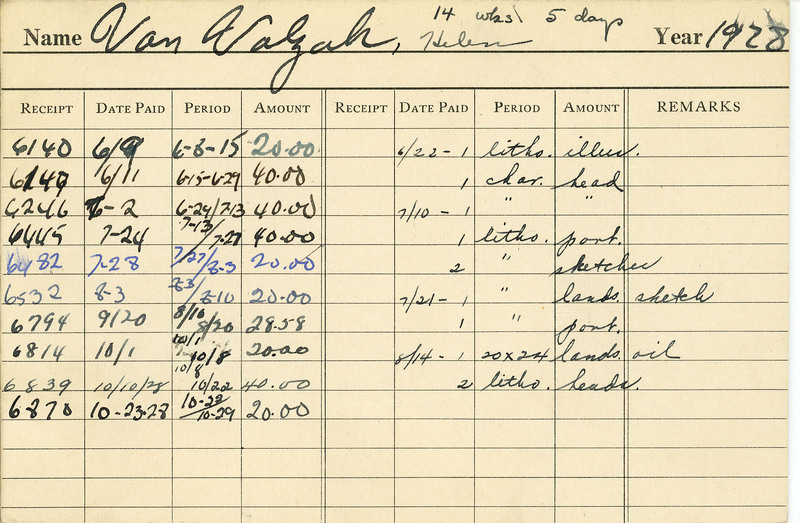 14 wks 5 days
Name Van Valzah, Helen Year 1928
RECEIPT DATE PAID PERIOD AMOUNT RECEIPT DATE PAID PERIOD AMOUNT REMARKS
6140 6/9 6-8-15 20.00 6/22 - 1 litho. illus.
6149 6/11 6-15-6-29 40.00 1 char. head
6246 7-2 6-29/7-13 40.00 7/10 - 1 " "
6445 7-24 7-13/7-27 40.00 1 litho. port.
6482 7-28 7/27/8-3 20.00 2 " sketches
6532 8-3 8-3/8-10 20.00 7/21 - 1 " lands. sketch
6794 9/20 8/10 8/20 28.58 1 " port.
6814 10/1 10/1 10/8 20.00 8/14 - 1 20x24 lands. oil
6839 10/10/28 10/8 10/22 40.00 2 litho. heads.
6870 10-23-28 10-22/10-29 20.00